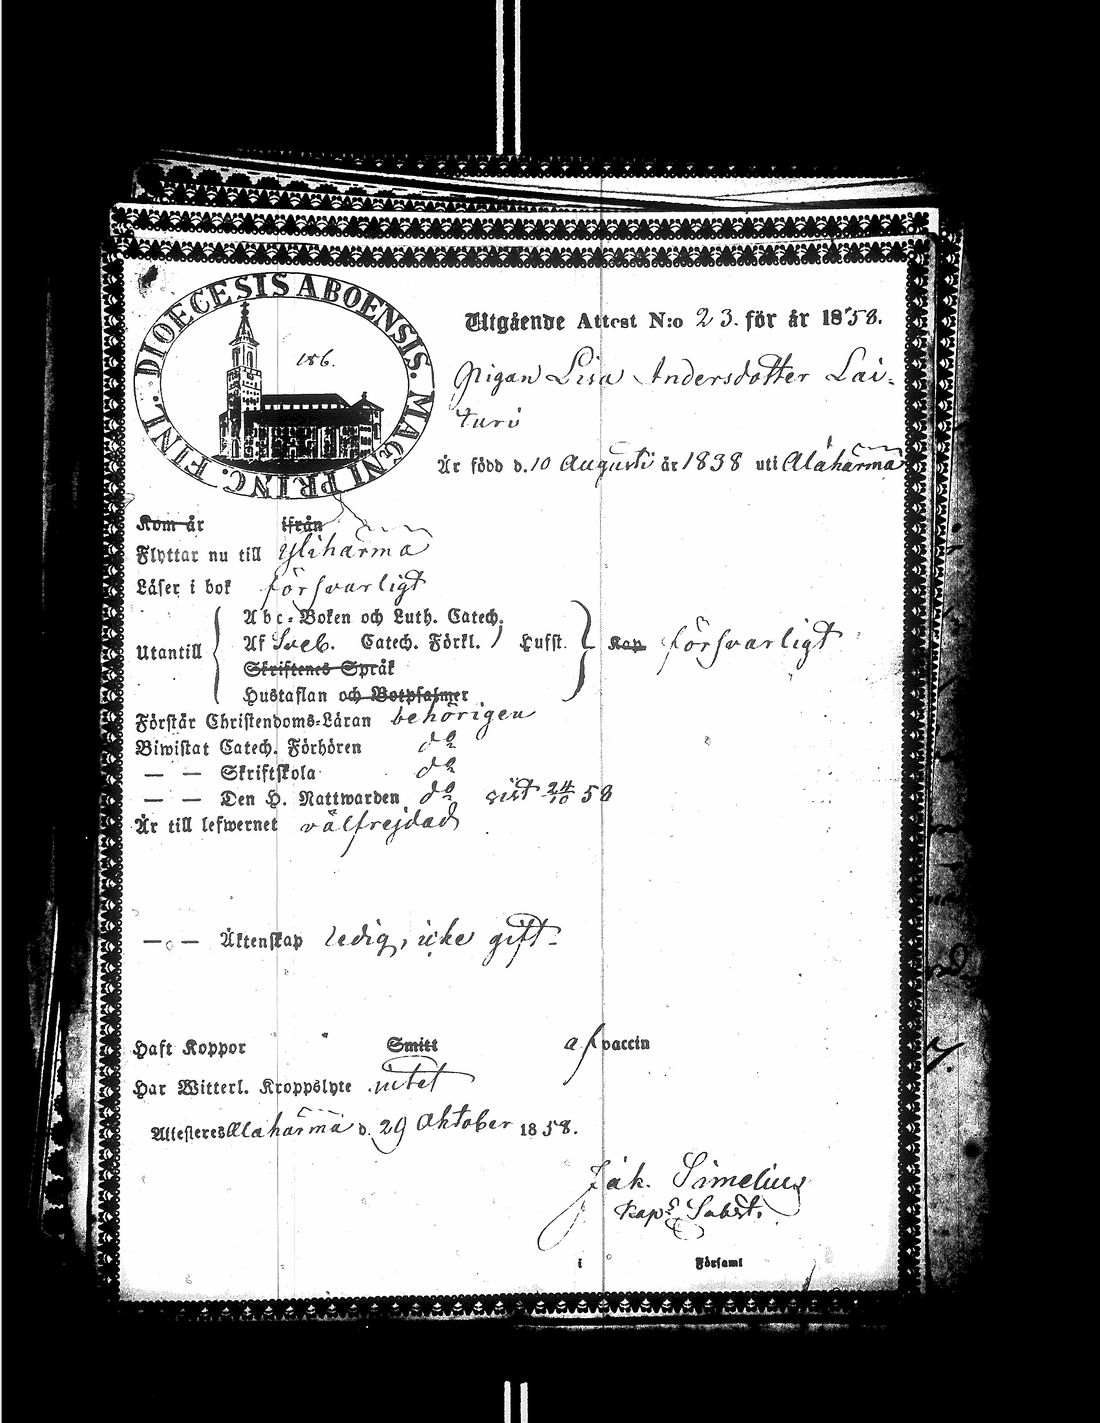 DIOECESIS ABOENSIS. MAGNI PRINC. FINL.
186.
Utgående Attest N:o 23. för år 1858.
Pigan Lisa Andersdotter Lai-
turi
Är född d. 10 Augusti år 1838 uti Alahärmä
Kom år ifrån
Flyttar nu till Ylihärmä
Läser i bok försvarligt
Abc-Boken och Luth. Catech.
Utantill Af Sveb. Catech. Förkl. / Hufst. Kap försvarligt
Skriftenes Språk
Hustaflan och Botpsalmer
Förstår Christendoms-Läran behörigen
Biwistat Catech. Förhören do
— — Skriftskola do
— — Den H. Nattwarden do sist 24/10 58
Är till lefwernet välfrejdad
— — Äktenskap ledig, icke gift-
Haft Koppor Smitt af vaccin
Har Witterl. Kroppslyte intet
Attesteres Alahärmä d. 29 Oktober 1858.
Jak. Simelius
Kapls Subst.
i Församl